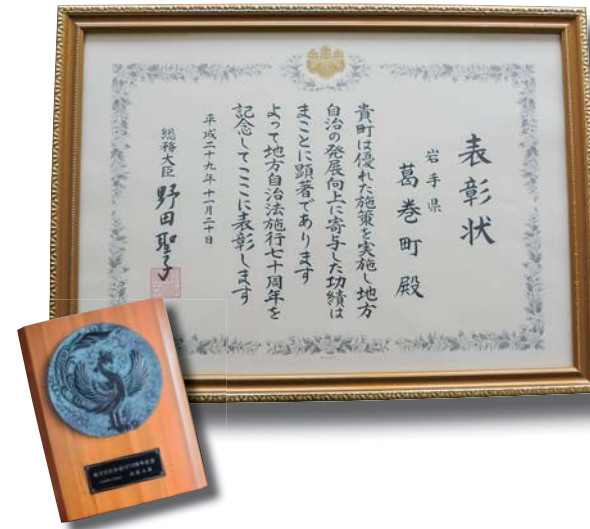 表彰状
岩手県
葛巻町殿
貴町は優れた施策を実施し地方
自治の発展向上に寄与した功績は
まことに顕著であります
よって地方自治法施行七十周年を
記念してここに表彰します
平成二十九年十一月二十日
総務大臣 野田聖子